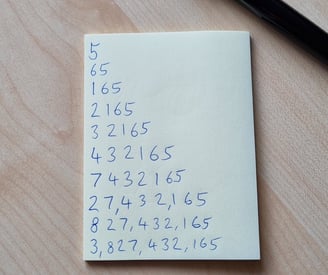 5
65
165
2165
32165
432165
7432165
27,432,165
827,432,165
3,827,432,165